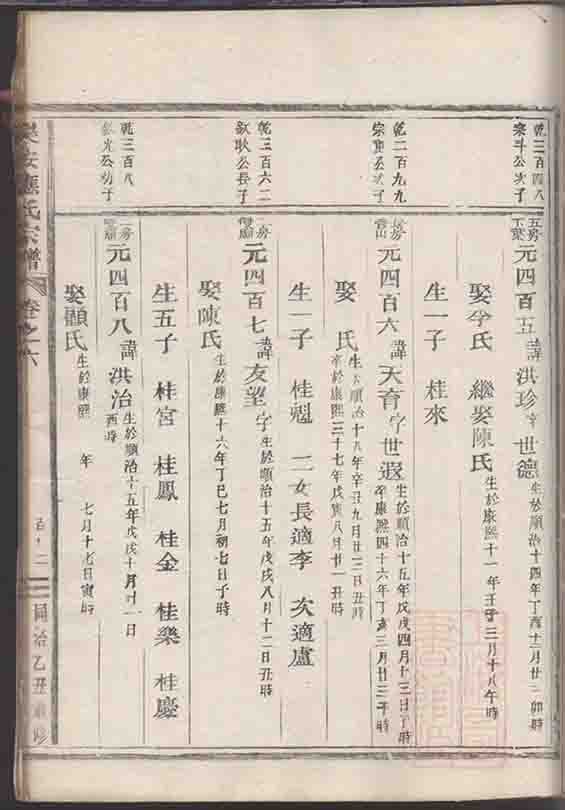 乾二百四八
宗斗公次子
五房
元四百五諱洪珍字世德
生於順治十四年丁酉十二月廿二卯時
娶李氏 繼娶陳氏
生於康熙十一年壬子三月十八午時
生一子 桂來
乾二百九九
宗寬公次子
元四百六諱天育字世遐
生於順治十五年戊戌四月十三日子時
卒康熙四十六年丁亥三月廿三午時
娶 氏
生於順治十八年辛丑九月廿三日丑時
卒於康熙三十七年戊寅八月廿一丑時
生一子 桂魁 二女長適李 次適盧
乾三百六二
欽耿公長子
二房
元四百七諱友望字
生於順治十五年戊戌八月十二日丑時
娶陳氏
生於康熙十六年丁巳七月初七日子時
生五子 桂宮 桂鳳 桂金 桂樂 桂慶
乾三百八
欽光公幼子
二房
元四百八諱洪治
生於順治十五年戊戌十月廿一日
酉時
娶顧氏
生於康熙 年 七月十七日寅時
樂安應氏宗譜
卷之六
同治乙丑重修